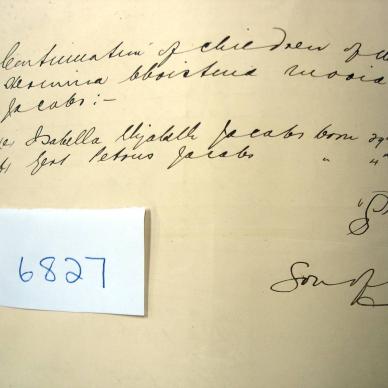 Continuation of children of
Hermina Christina Maria
Jacobs:-
Isabella Elizabeth Jacobs born
Gert Petrus Jacobs " "
6827
Son of